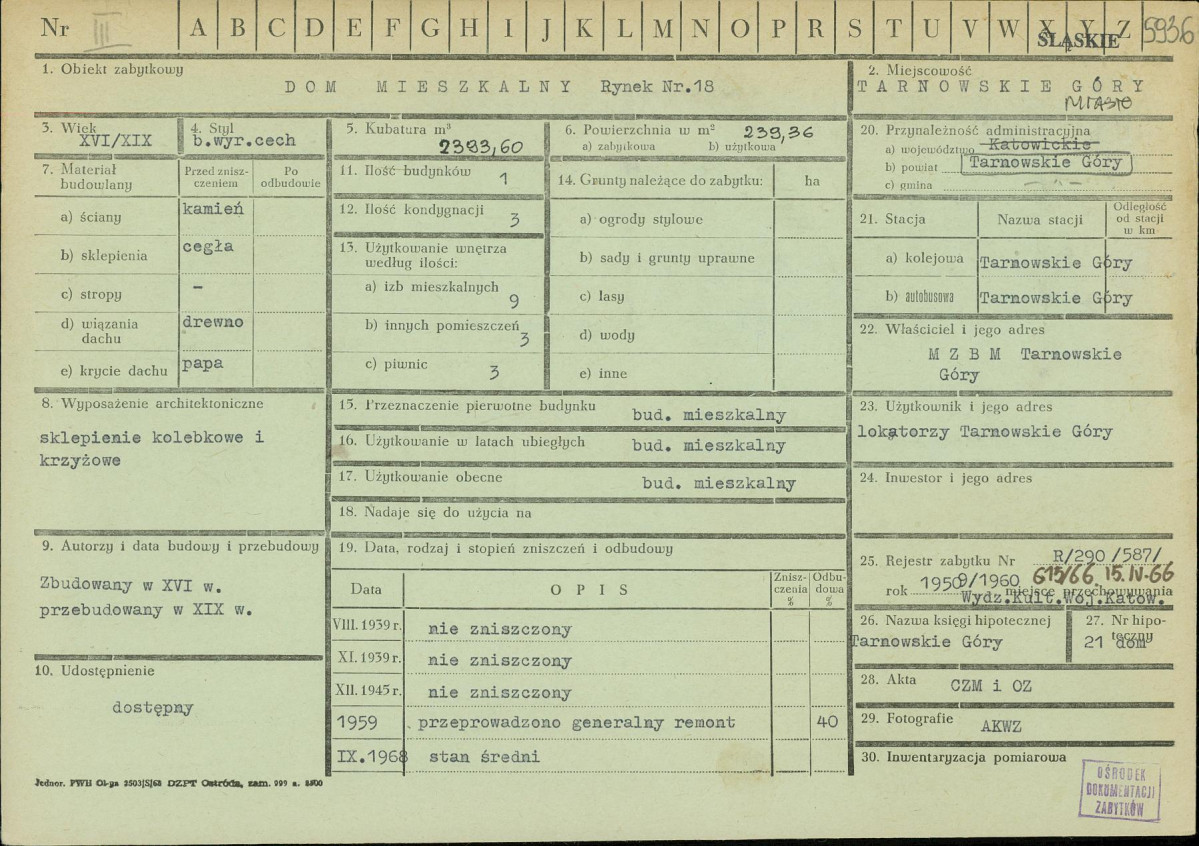 Nr III A B C D E F G H I J K L M N O P R S T U V W X Y Z 5936
ŚLĄSKIE
1. Obiekt zabytkowy
DOM MIESZKALNY Rynek Nr.18
2. Miejscowość
TARNOWSKIE GÓRY
MIASTO
3. Wiek
XVI/XIX
4. Styl
b.wyr.cech
5. Kubatura m³
2393,60
6. Powierzchnia w m² 239,36
a) zabytkowa b) użytkowa
20. Przynależność administracyjna
a) województwo Katowickie
b) powiat Tarnowskie Góry
c) gmina - " -
7. Materiał budowlany
Przed zniszczeniem
Po odbudowie
a) ściany kamień
b) sklepienia cegła
c) stropy -
d) wiązania dachu drewno
e) krycie dachu papa
11. Ilość budynków 1
12. Ilość kondygnacji 3
13. Użytkowanie wnętrza
według ilości:
a) izb mieszkalnych 9
b) innych pomieszczeń 3
c) piwnic 3
14. Grunty należące do zabytku: ha
a) ogrody stylowe
b) sady i grunty uprawne
c) lasy
d) wody
e) inne
21. Stacja Nazwa stacji Odległość od stacji w km
a) kolejowa Tarnowskie Góry
b) autobusowa Tarnowskie Góry
22. Właściciel i jego adres
M Z B M Tarnowskie
Góry
8. Wyposażenie architektoniczne
sklepienie kolebkowe i
krzyżowe
15. Przeznaczenie pierwotne budynku bud. mieszkalny
16. Użytkowanie w latach ubiegłych bud. mieszkalny
17. Użytkowanie obecne bud. mieszkalny
18. Nadaje się do użycia na
23. Użytkownik i jego adres
lokatorzy Tarnowskie Góry
24. Inwestor i jego adres
9. Autorzy i data budowy i przebudowy
Zbudowany w XVI w.
przebudowany w XIX w.
19. Data, rodzaj i stopień zniszczeń i odbudowy
Data OPIS Zniszczenia % Odbudowa %
VIII. 1939 r. nie zniszczony
XI. 1939 r. nie zniszczony
XII. 1945 r. nie zniszczony
1959 przeprowadzono generalny remont 40
IX.1968 stan średni
25. Rejestr zabytku Nr R/290/587/
rok 1950 9/1960 615/66 15.IV.66
miejsce przechowywania
Wydz.Kult.Woj.Katow.
26. Nazwa księgi hipotecznej
Tarnowskie Góry
27. Nr hipoteczny
21 dom
10. Udostępnienie
dostępny
28. Akta CZM i OZ
29. Fotografie AKWZ
30. Inwentaryzacja pomiarowa
OŚRODEK
DOKUMENTACJI
ZABYTKÓW
Jednor. PWH Ol-ga 2503|S|68 DZPT Ostróda, zam. 999 n. 8500